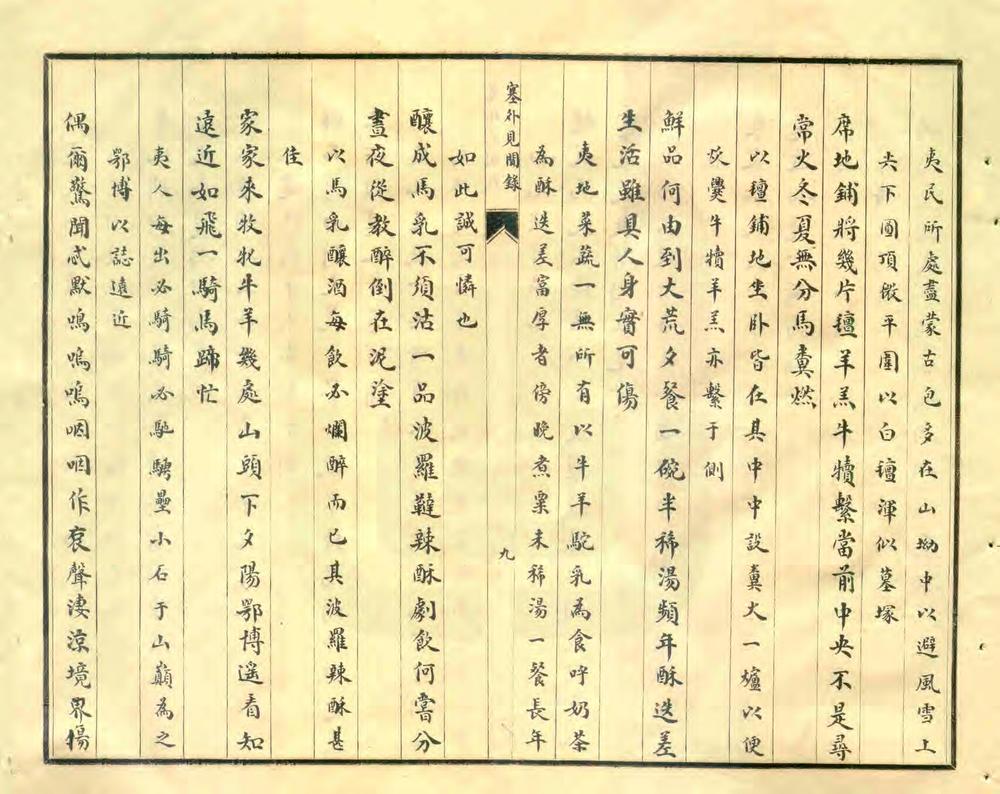 夷民所處盡蒙古包多在山坳中以避風雪上
尖下圓頂微平圍以白氊渾似墓塚
席地鋪將幾片氊羊羔牛犢繫當前中央不是尋
常火冬夏無分馬糞燃
以氊鋪地坐臥皆在其中中設糞火一爐以便
炊爨牛犢羊羔亦繫于側
鮮品何由到大荒夕餐一碗半稀湯頻年酥迭差
生活雖具人身實可傷
夷地菜蔬一無所有以牛羊駝乳為食呼奶茶
為酥迭差富厚者傍晚煮粟未稀湯一餐長年
塞外見聞錄
九
如此誠可憐也
釀成馬乳不須沽一品波羅韃辣酥劇飲何嘗分
晝夜從教醉倒在泥塗
以馬乳釀酒每飲必爛醉而已其波羅辣酥甚
佳
家家來牧牝牛羊幾處山頭下夕陽鄂博遙看知
遠近如飛一騎馬蹄忙
夷人每出必騎騎必馳騁壘小石于山巔為之
鄂博以誌遠近
偶爾驚聞忒默鳴嗚嗚咽咽作哀聲淒涼境界揚